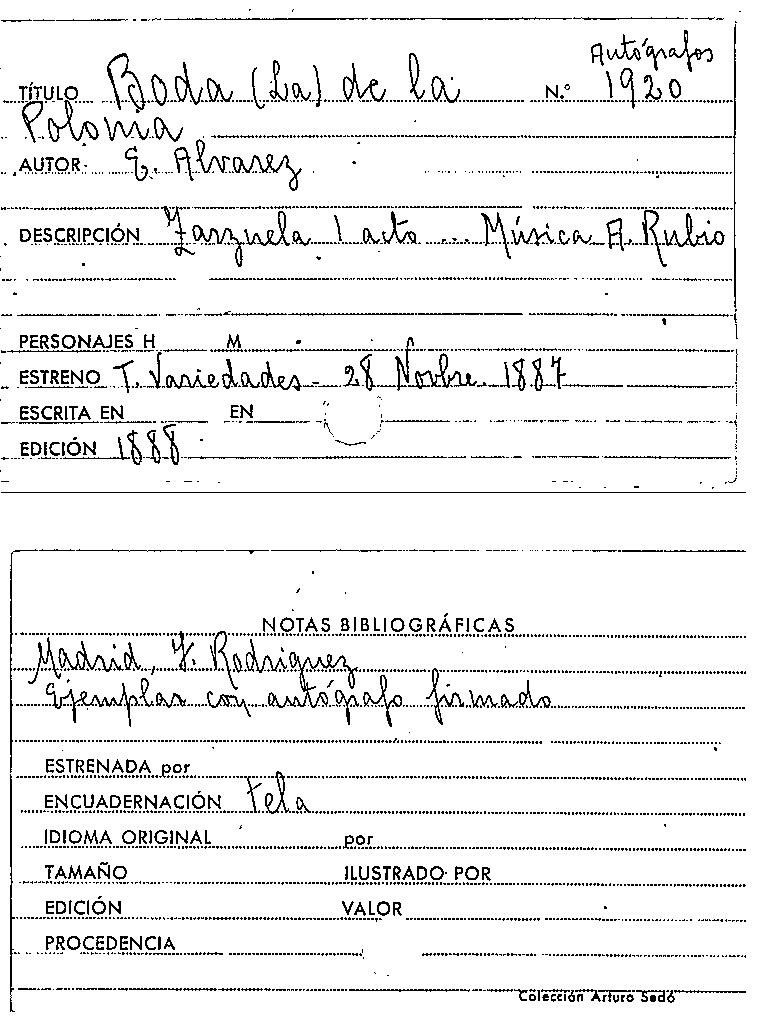 Autógrafos
TÍTULO Boda (La) de la N.º 1920
Polonia
AUTOR E. Alvarez
DESCRIPCIÓN Zarzuela 1 acto ... Música A. Rubio
PERSONAJES H M
ESTRENO T. Variedades - 28 Novbre. 1887
ESCRITA EN EN
EDICIÓN 1888
NOTAS BIBLIOGRÁFICAS
Madrid, J. Rodriguez
Ejemplar con autógrafo firmado
ESTRENADA por
ENCUADERNACIÓN tela
IDIOMA ORIGINAL por
TAMAÑO ILUSTRADO POR
EDICIÓN VALOR
PROCEDENCIA
Colección Arturo Sedó